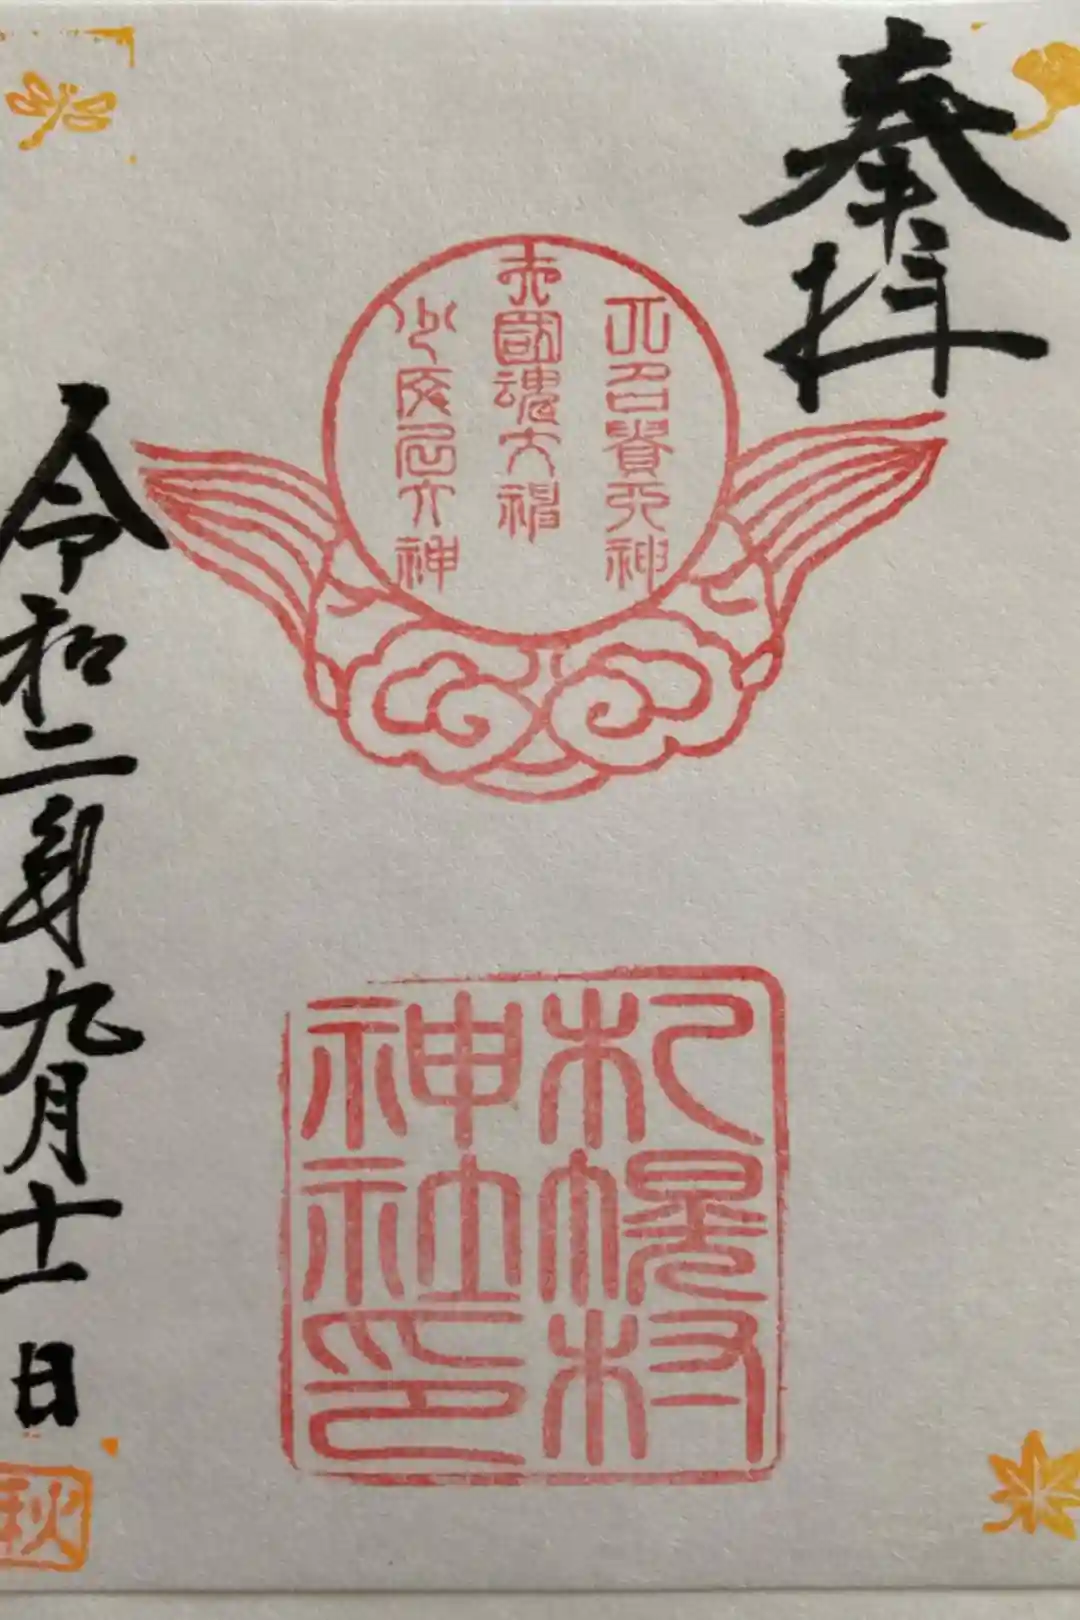 奉拝
大名貴大神
大國魂大神
少彦名大神
札幌村
神社印
令和二年九月十一日
秋